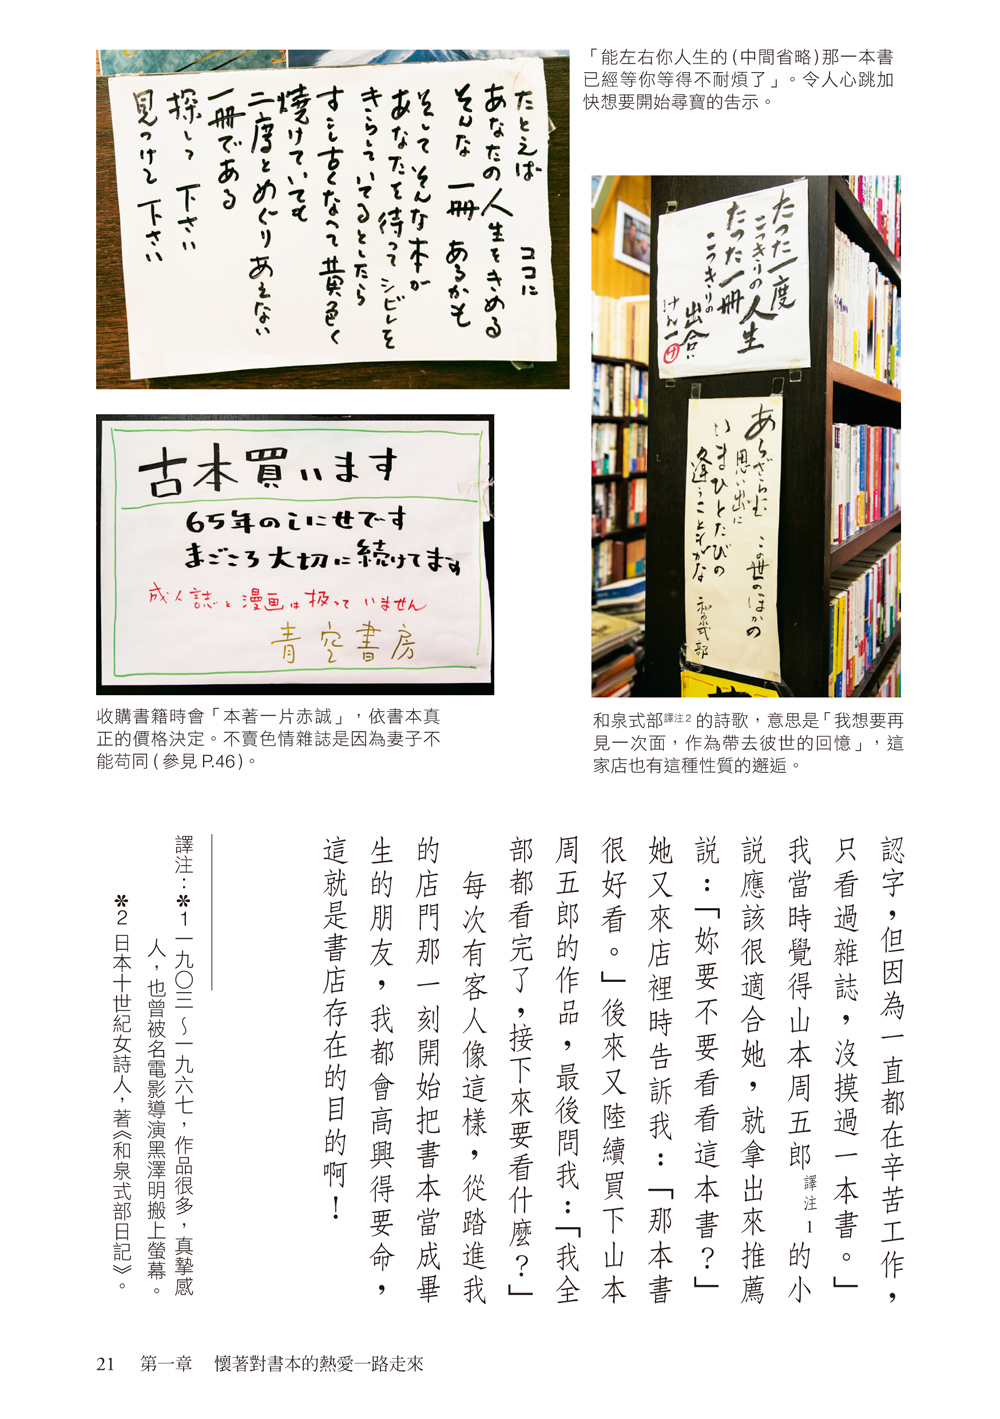 たとえば　ココに
あなたの人生をきめる
そんな一冊　あるかも
そして　そんな本が
あなたを待って　シビレを
きらしているとしたら
すこし古くなって黄色く
焼けていても
二度とめぐりあえない
一冊である
探して　下さい
見つけて　下さい
「能左右你人生的(中間省略)那一本書
已經等你等得不耐煩了」。令人心跳加
快想要開始尋寶的告示。
たった一度
こっきりの人生
たった一冊
こっきりの出合い
けん一
あらざらむ　この世のほかの
思い出に
いまひとたびの
逢うこともがな
和泉式部
古本買います
65年のしにせです
まごころ大切に続けてます
成人誌と漫画は扱っていません
青空書房
收購書籍時會「本著一片赤誠」，依書本真
正的價格決定。不賣色情雜誌是因為妻子不
能苟同(參見P.46)。
和泉式部譯注2的詩歌，意思是「我想要再
見一次面，作為帶去彼世的回憶」，這
家店也有這種性質的邂逅。
認字，但因為一直都在辛苦工作，
只看過雜誌，沒摸過一本書。」
我當時覺得山本周五郎譯注1的小
說應該很適合她，就拿出來推薦
說：「妳要不要看看這本書？」
她又來店裡時告訴我：「那本書
很好看。」後來又陸續買下山本
周五郎的作品，最後問我：「我全
部都看完了，接下來要看什麼？」
每次有客人像這樣，從踏進我
的店門那一刻開始把書本當成畢
生的朋友，我都會高興得要命，
這就是書店存在的目的啊！
譯注：＊1 一九〇三～一九六七，作品很多，真摯感
人，也曾被名電影導演黑澤明搬上螢幕。
＊2 日本十世紀女詩人，著《和泉式部日記》。
21　第一章　懷著對書本的熱愛一路走來